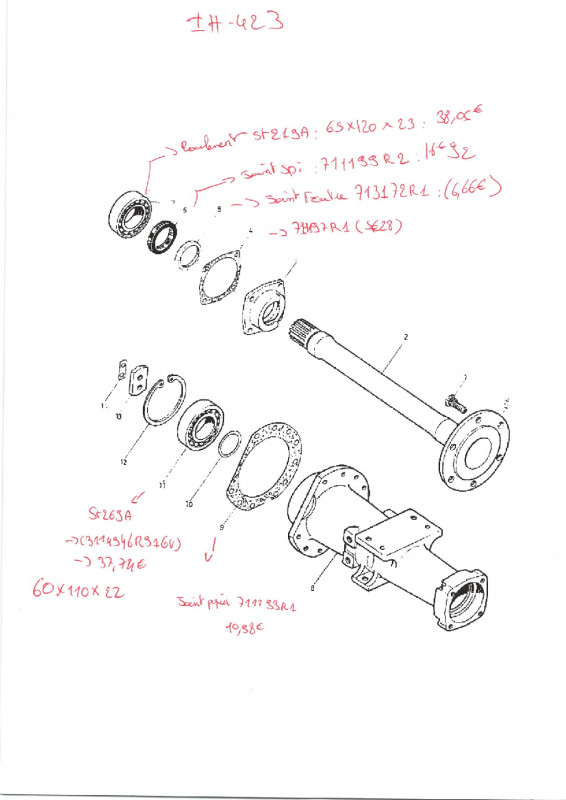 IH-423
-> Roulement St219A: 65x120x23: 38,05€
-> Joint Spi: 711199R2: 16€92
-> Joint Feutre 713172R1: (6,66€)
-> 71197R1 (5€28)
7
6
5
4
2
3
11
13
12
11
10
9
8
St269A
->(3114946R916V)
-> 37,74€
60x110x22
Joint papier 711193R1
10,98€